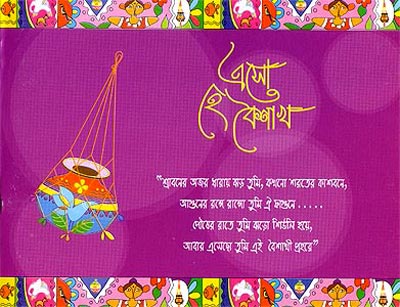 এসো
হে বৈশাখ
“শ্রাবনের অজর ধারায় ঝড় তুমি, কখনো শরতের কাশবনে,
আগুনের রঙ্গে রাঙ্গো তুমি ঐ ফাগুনে .....
পৌষের রাতে তুমি ঝরো শিউলি হয়ে,
আবার এসেছো তুমি এই বৈশাখী প্রহরে”